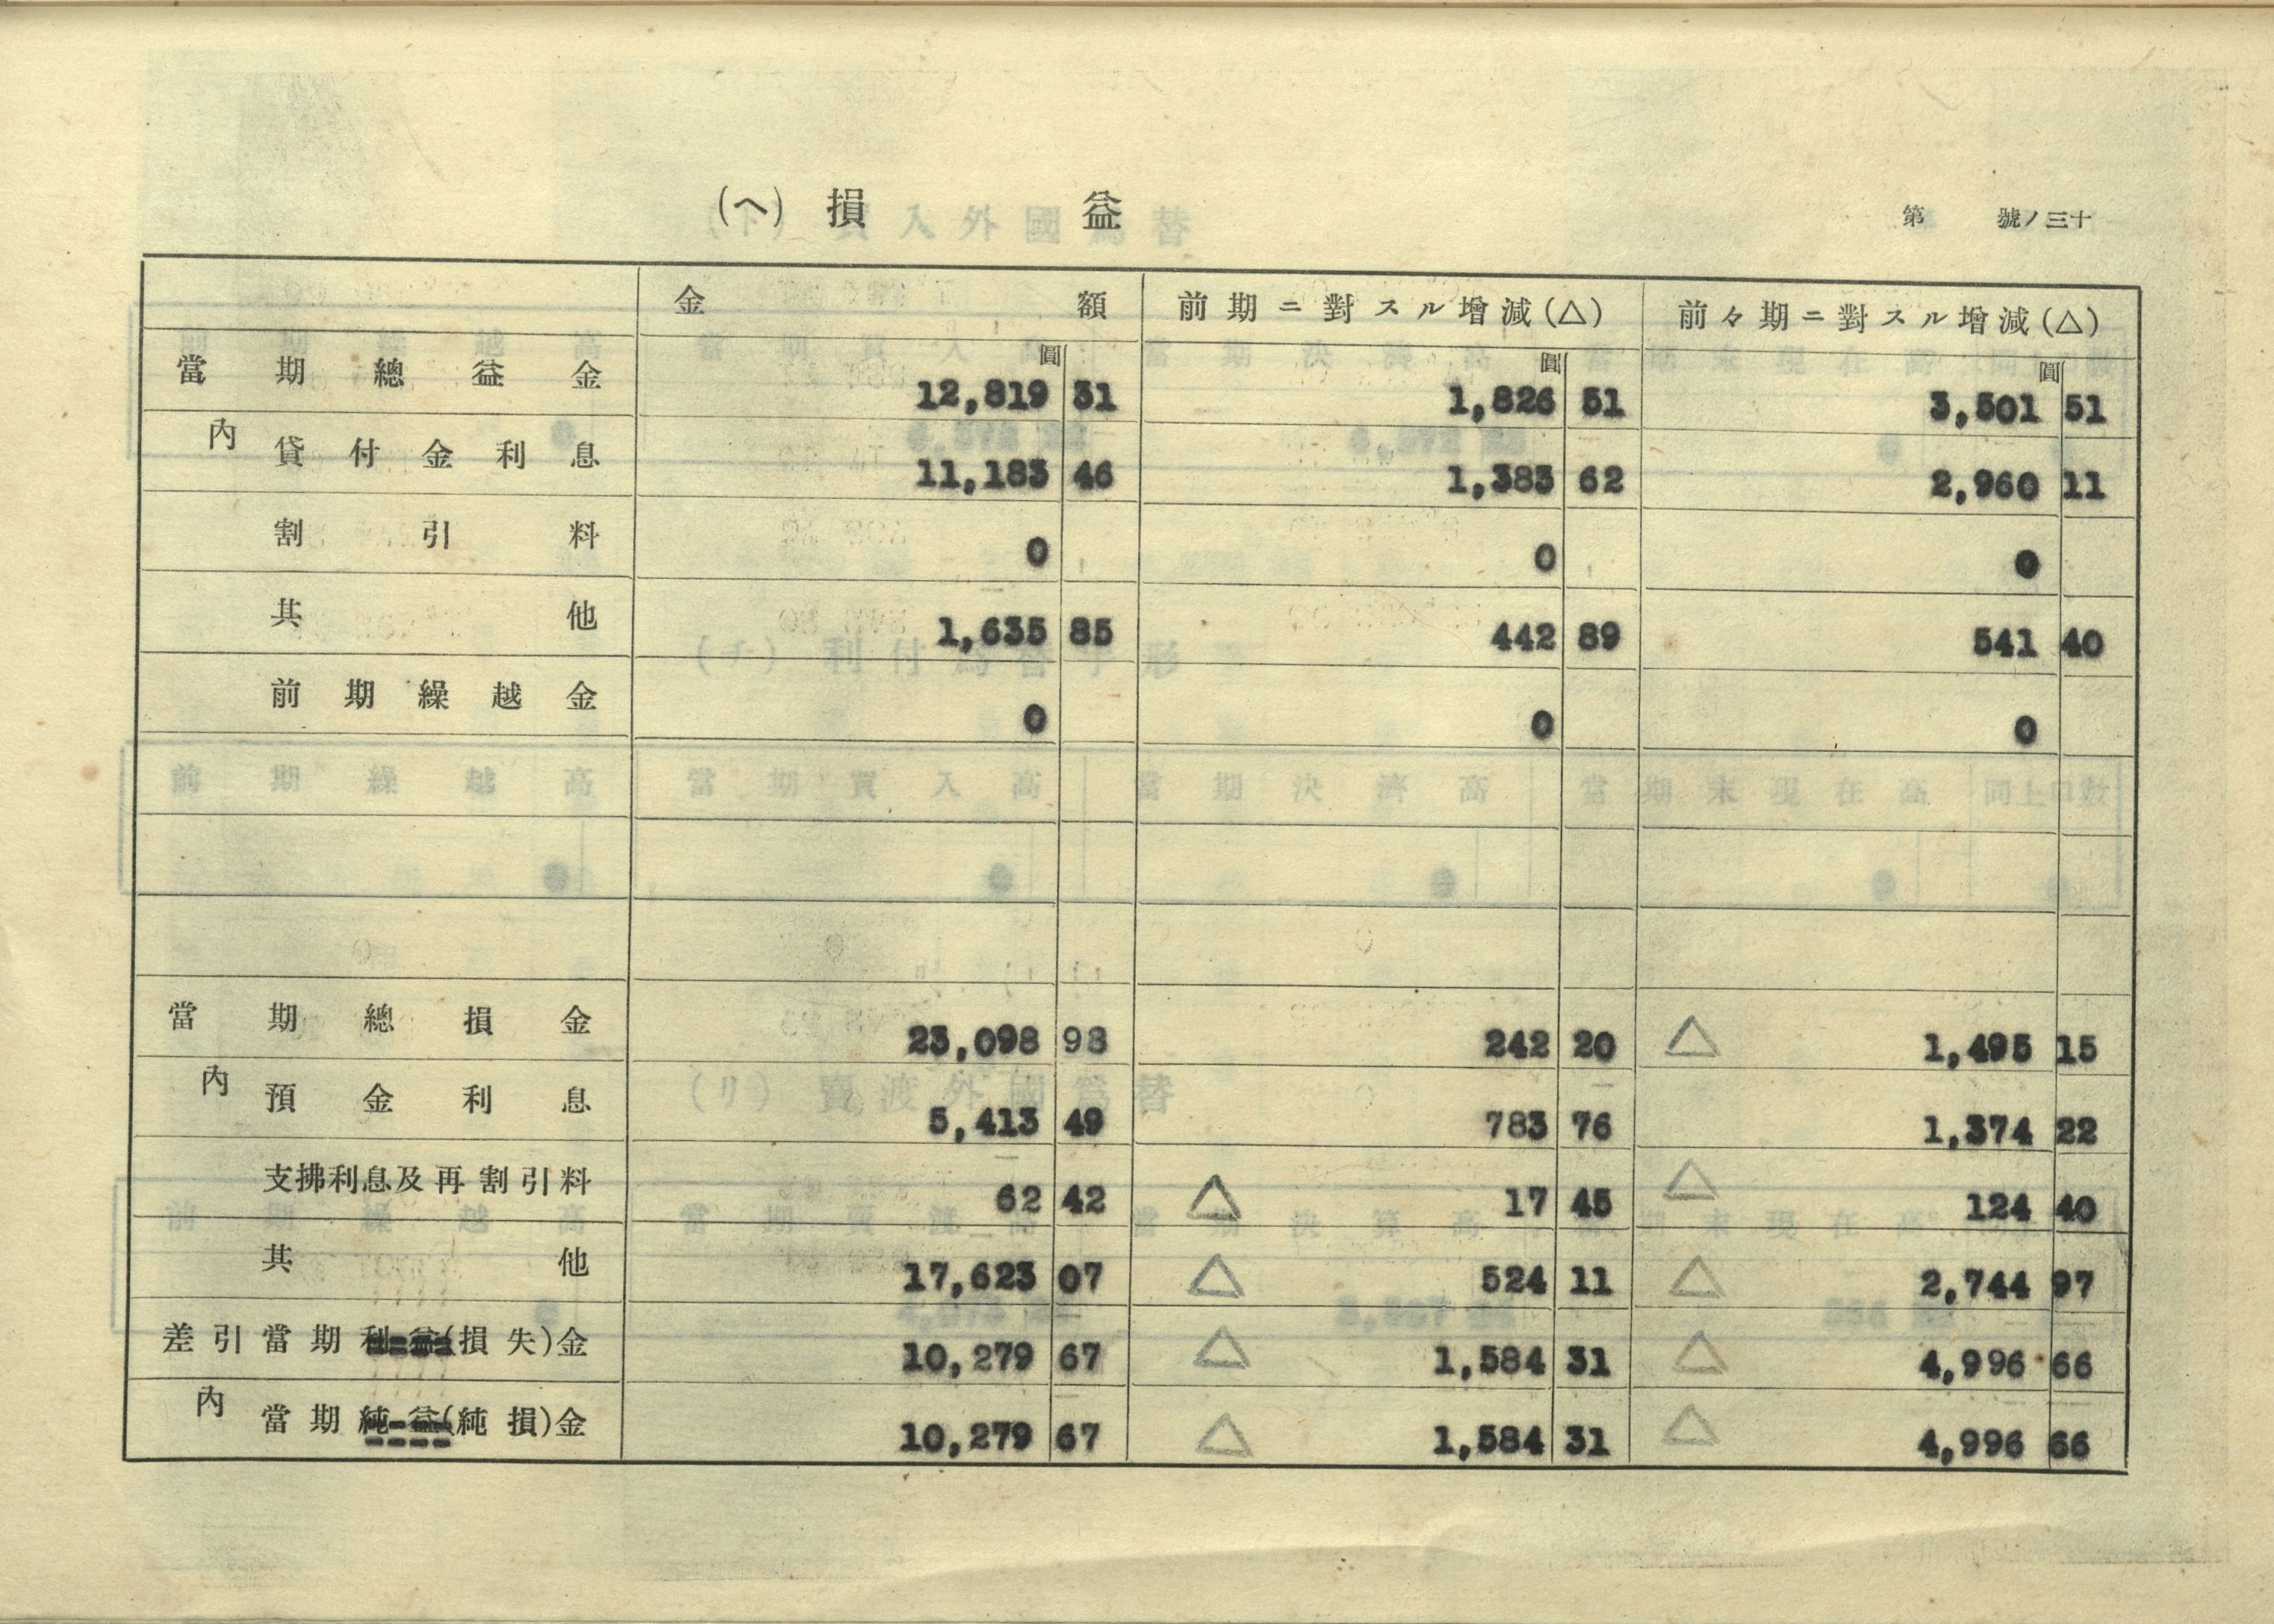 (ヘ) 損益
第 號ノ三十
金額 前期ニ對スル增減(△) 前々期ニ對スル增減(△)
圓 圓 圓
當期總益金 12,819 31 1,826 51 3,501 51
內 貸付金利息 11,183 46 1,383 62 2,960 11
割引料 0 0 0
其他 1,635 85 442 89 541 40
前期繰越金 0 0 0
當期總損金 23,098 98 242 20 △ 1,495 15
內 預金利息 5,413 49 783 76 1,374 22
支拂利息及再割引料 62 42 △ 17 45 △ 124 40
其他 17,623 07 △ 524 11 △ 2,744 97
差引當期利益(損失)金 10,279 67 △ 1,584 31 △ 4,996 66
內 當期純益(純損)金 10,279 67 △ 1,584 31 △ 4,996 66